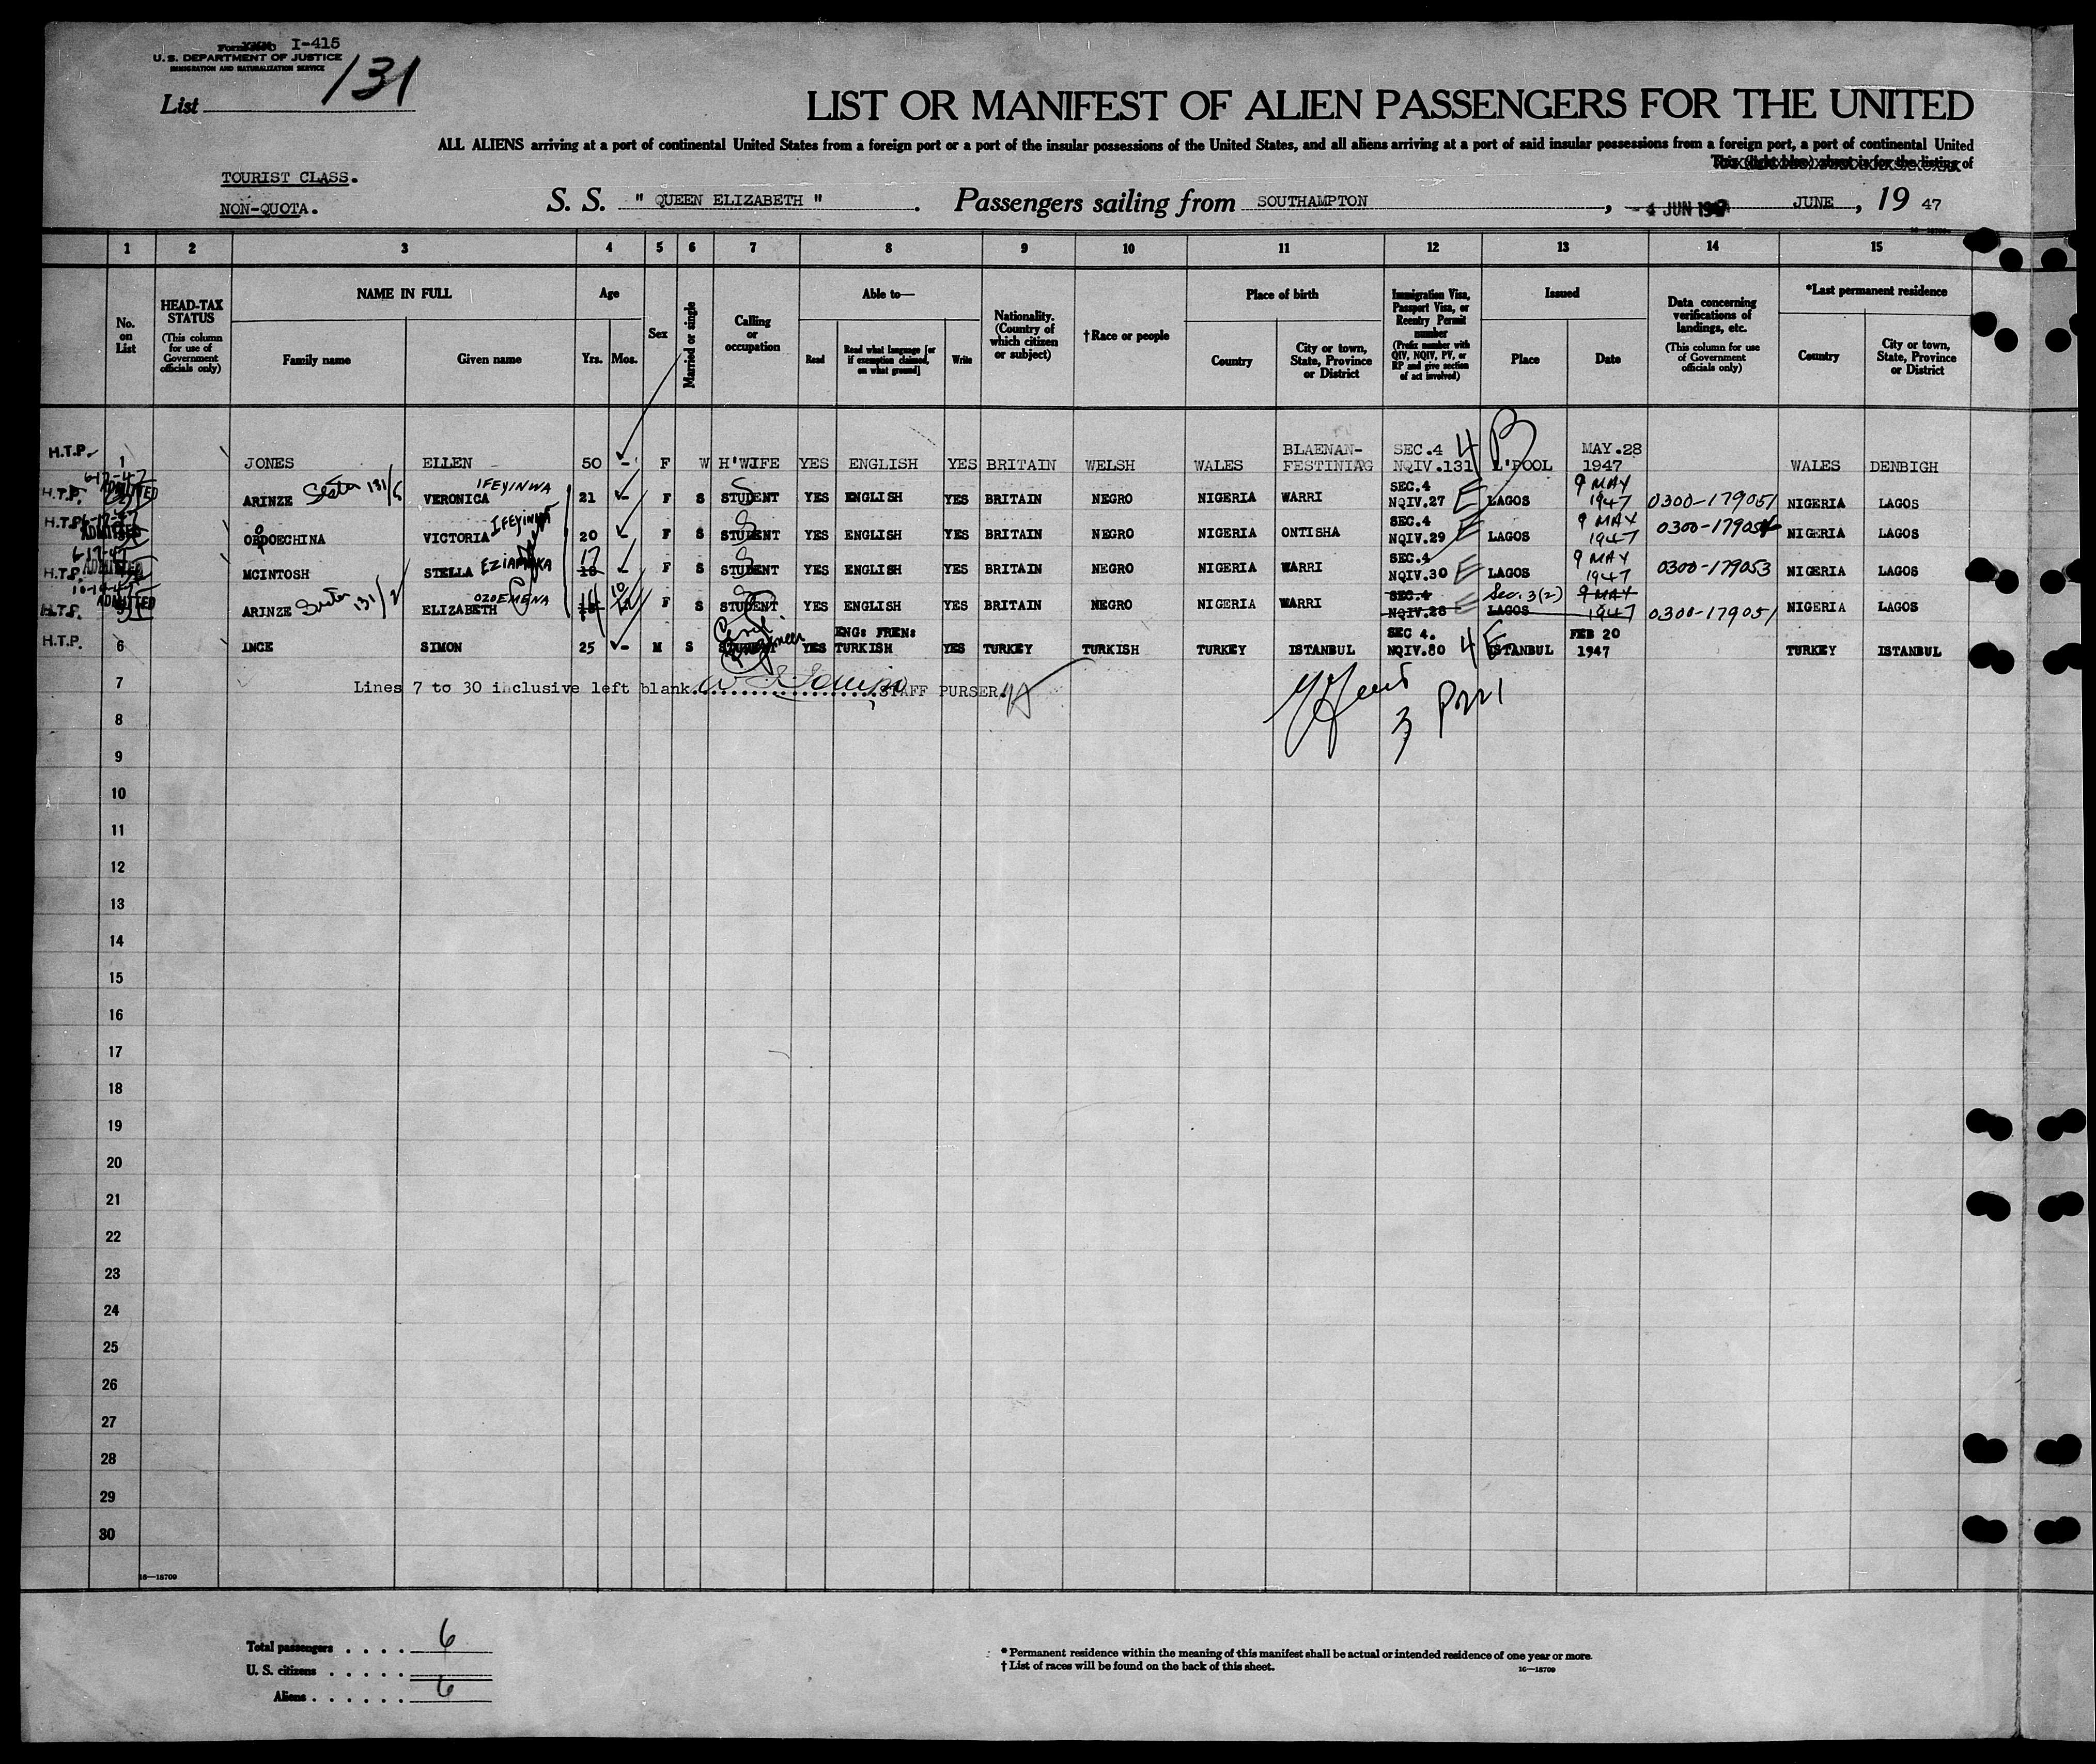 Form I-415
U. S. DEPARTMENT OF JUSTICE
IMMIGRATION AND NATURALIZATION SERVICE
List 131
LIST OR MANIFEST OF ALIEN PASSENGERS FOR THE UNITED
ALL ALIENS arriving at a port of continental United States from a foreign port or a port of the insular possessions of the United States, and all aliens arriving at a port of said insular possessions from a foreign port, a port of continental United
This (light blue) sheet is for the listing of
TOURIST CLASS.
NON-QUOTA.
S. S. " QUEEN ELIZABETH " . Passengers sailing from SOUTHAMPTON , - 4 JUN 1947 JUNE , 19 47
16-18709
1 2 3 4 5 6 7 8 9 10 11 12 13 14 15
No. on List
HEAD-TAX STATUS (This column for use of Government officials only)
NAME IN FULL
Family name
Given name
Age
Yrs.
Mos.
Sex
Married or single
Calling or occupation
Able to—
Read
Read what language [or if exemption claimed, on what ground]
Write
Nationality. (Country of which citizen or subject)
†Race or people
Place of birth
Country
City or town, State, Province or District
Immigration Visa, Passport Visa, or Reentry Permit number (Prefix number with QIV, NQIV, PV, or RP and give section of act involved)
Issued
Place
Date
Data concerning verifications of landings, etc. (This column for use of Government officials only)
*Last permanent residence
Country
City or town, State, Province or District
H.T.P. 1 JONES ELLEN 50 - F W H'WIFE YES ENGLISH YES BRITAIN WELSH WALES BLAENAN-FESTINIAG SEC.4 NQIV.131 4 B L'POOL MAY.28 1947 WALES DENBIGH
H.T.P. 6-17-47 ADMITTED ARINZE Sister 131/5 VERONICA IFEYINWA 21 - F S STUDENT S YES ENGLISH YES BRITAIN NEGRO NIGERIA WARRI SEC.4 NQIV.27 E LAGOS 9 MAY 1947 0300-179051 NIGERIA LAGOS
H.T.P. 6-17-47 ADMITTED OEDOECHINA VICTORIA IFEYINWA 20 - F S STUDENT S YES ENGLISH YES BRITAIN NEGRO NIGERIA ONTISHA SEC.4 NQIV.29 E LAGOS 9 MAY 1947 0300-179054 NIGERIA LAGOS
H.T.P. 6-17-47 ADMITTED MCINTOSH STELLA 17 18 F S STUDENT S YES ENGLISH YES BRITAIN NEGRO NIGERIA WARRI SEC.4 NQIV.30 E LAGOS 9 MAY 1947 0300-179053 NIGERIA LAGOS
H.T.P. ADMITTED ARINZE Sister 131/2 ELIZABETH OZOEMENA 14 10 F S STUDENT YES ENGLISH YES BRITAIN NEGRO NIGERIA WARRI SEC.4 NQIV.28 E Sec. 3(2) LAGOS 9 MAY 1947 0300-179051 NIGERIA LAGOS
H.T.P. 6 INCE SIMON 25 - M S STUDENT Civil Engineer YES ENG: FREN: TURKISH YES TURKEY TURKISH TURKEY ISTANBUL SEC 4. NQIV.80 4 E ISTANBUL FEB 20 1947 TURKEY ISTANBUL
7 Lines 7 to 30 inclusive left blank STAFF PURSER.
8
9
10
11
12
13
14
15
16
17
18
19
20
21
22
23
24
25
26
27
28
29
30
16—18709
Total passengers . . . . 6
U. S. citizens . . . . .
Aliens . . . . . . 6
* Permanent residence within the meaning of this manifest shall be actual or intended residence of one year or more.
† List of races will be found on the back of this sheet.
16—18709